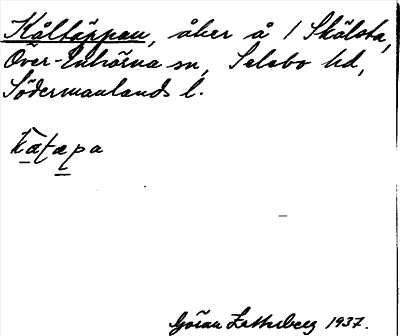 Kåltäppan, åker å 1 Skälsta,
Över-Enhörna sn, Selebo hd,
Södermanlands l.
kåtæpa
Göran Zetterberg 1937.